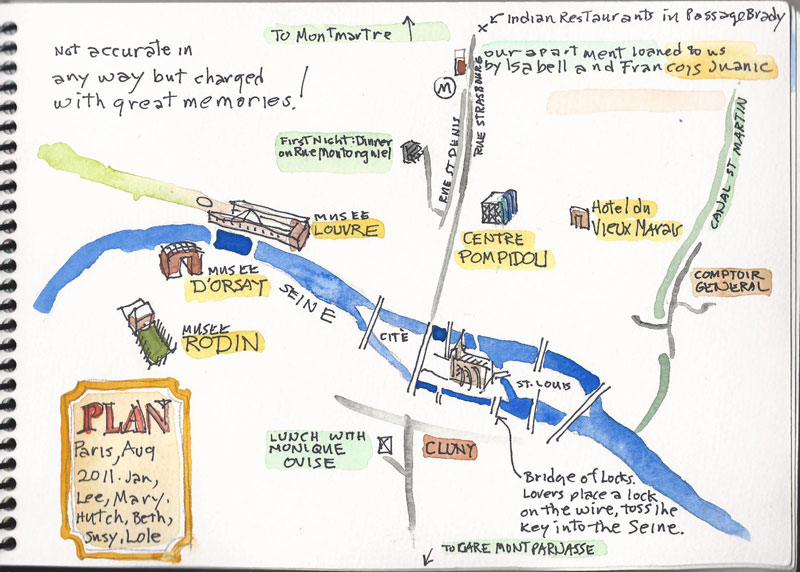 Not accurate in
any way but charged
with great memories!
To Montmartre
Indian Restaurants in Passage Brady
our apartment loaned to us
by Isabell and Francois Juanic
M
RUE ST DENIS
RUE STRASBOURG
First Night: Dinner
on Rue Montorgniel
CANAL ST MARTIN
MUSEE
LOUVRE
CENTRE
POMPIDOU
Hotel du
Vieux Marais
COMPTOIR
GENERAL
MUSEE
D'ORSAY
SEINE
MUSEE
RODIN
CITÈ
ST. LOUIS
PLAN
Paris, Aug
2011. Jan,
Lee, Mary.
Hutch, Beth,
Susy, Lole
LUNCH WITH
MONIQUE
OUISE
CLUNY
Bridge of Locks.
Lovers place a lock
on the wire, toss the
key into the Seine.
TO GARE MONTPARNASSE